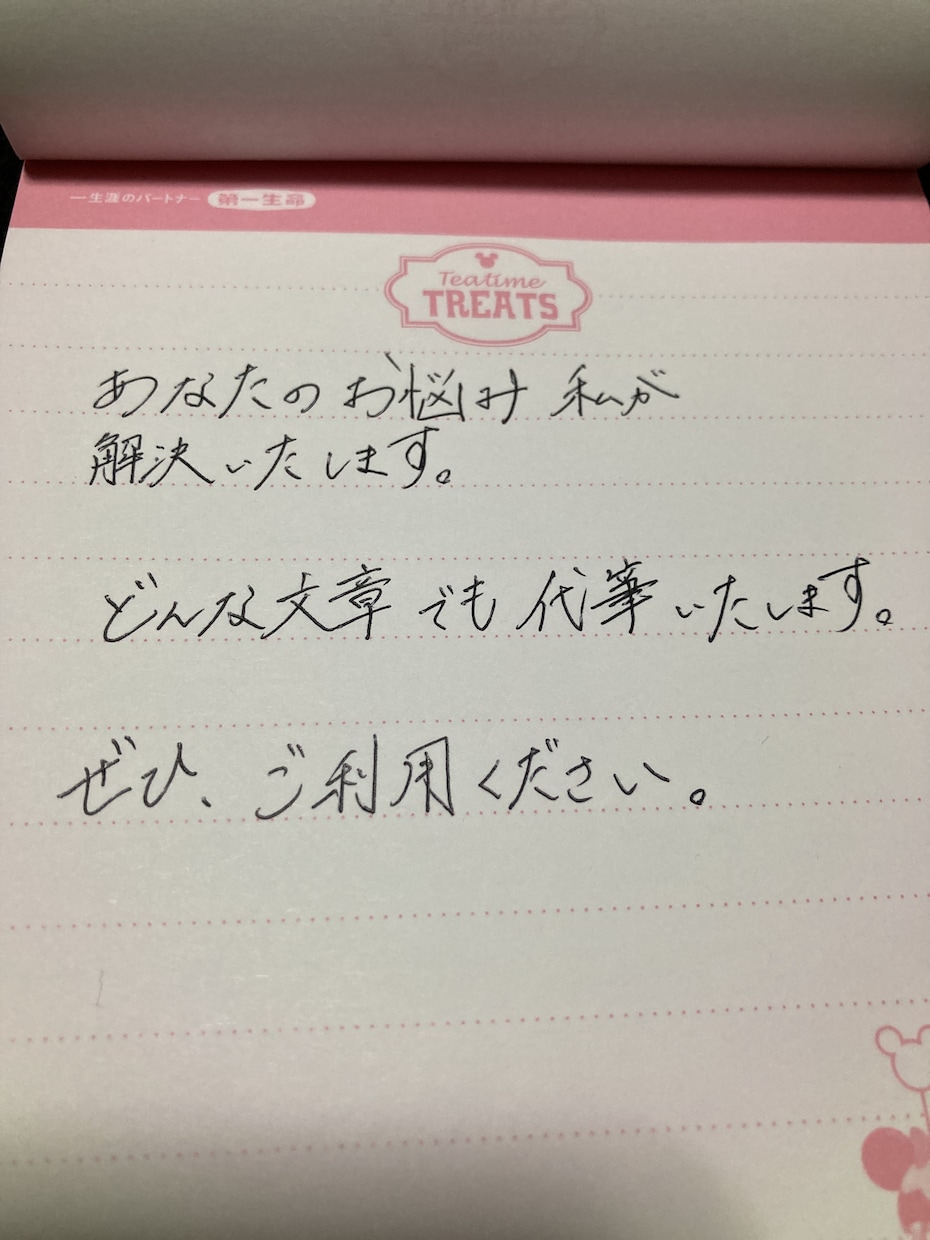 一生涯のパートナー 第一生命
Teatime
TREATS
あなたのお悩み 私が
解決いたします。
どんな文章でも代筆いたします。
ぜひ、ご利用ください。